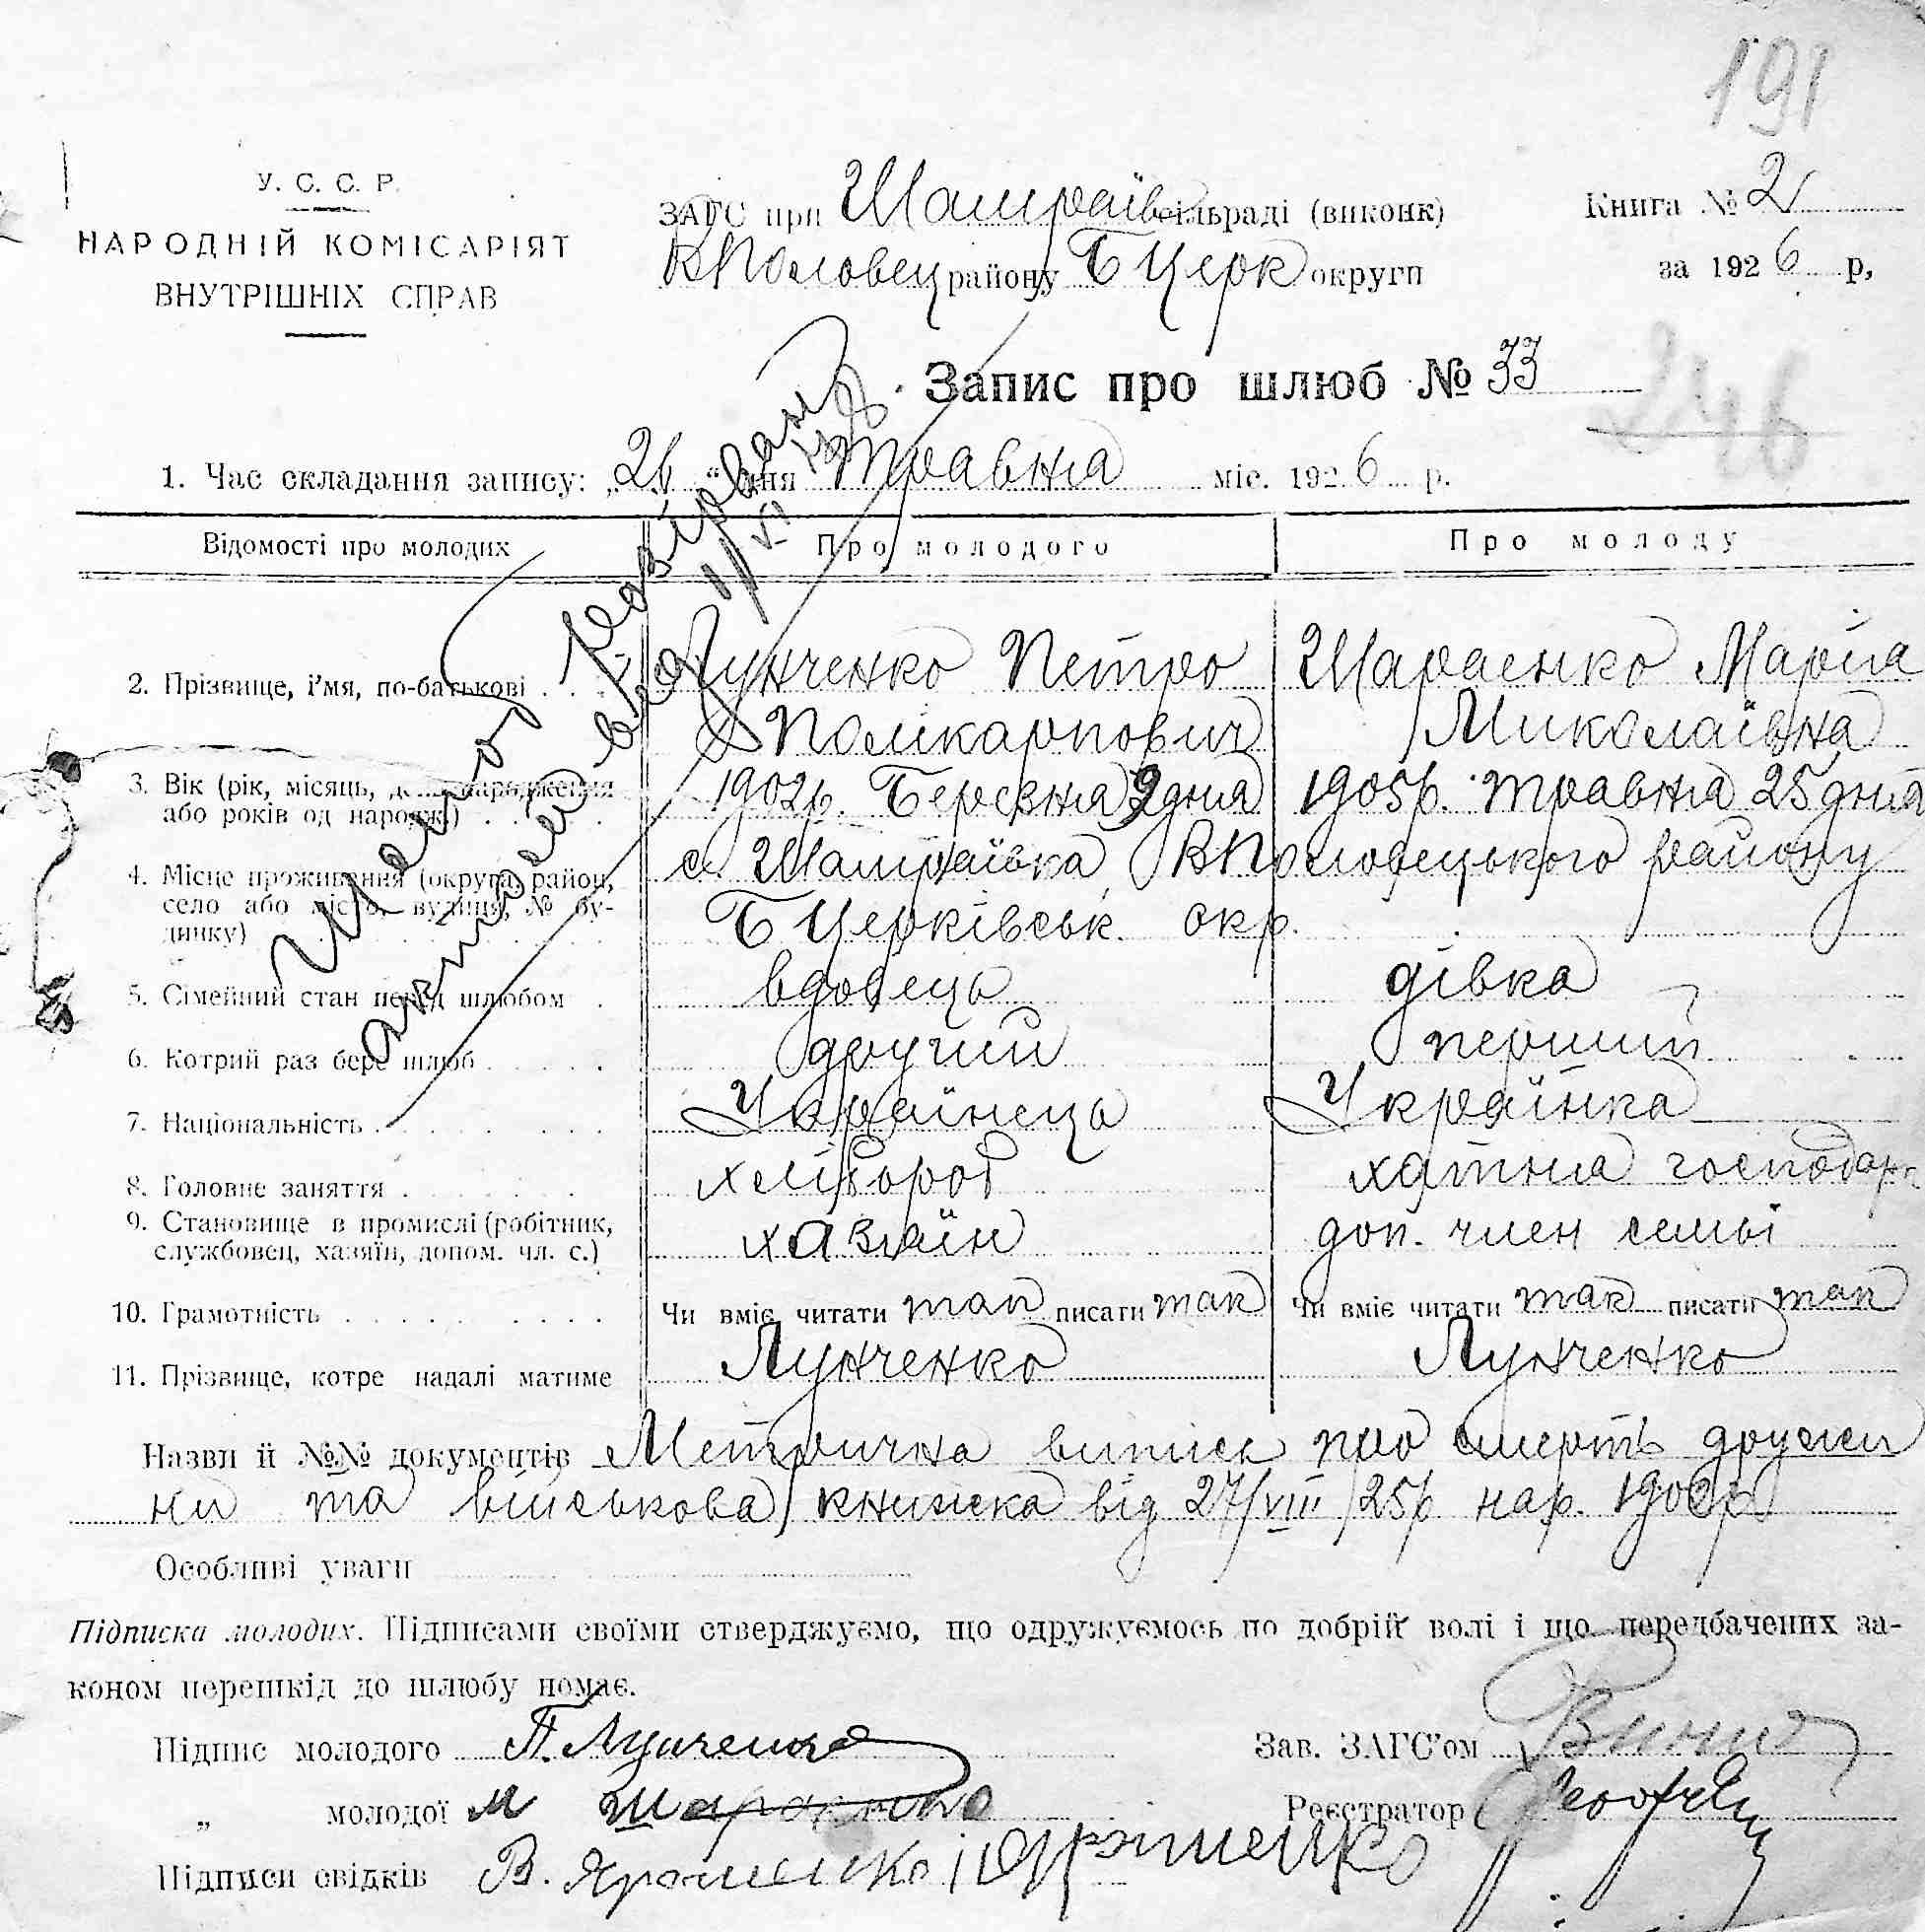 191
У. С. С. Р.
НАРОДНІЙ КОМІСАРІЯТ
ВНУТРІШНІХ СПРАВ
ЗАГС при Шамраївсільраді (виконк)
ВПоловец району Б Церк округи
Книга № 2
за 1926 р,
Запис про шлюб № 33
246
1. Час складання запису: „26“ дня травня міс. 1926 р.
Відомості про молодих
Про молодого
Про молоду
Шлюб розірван
актом від
1/VI
2. Прізвище, і'мя, по-батькові . . .
Лунченко Петро
Полікарпович
Шараенко Марія
Миколаївна
3. Вік (рік, місяць, день народження
або років од народж.) . . .
1902р. Березня 9 дня
1905р. травня 25 дня
4. Місце проживання (округа, район,
село або місто, вулиця, № бу-
динку)
с. Шамраївка, ВПоловецького району
Б Церківськ. окр.
5. Сімейний стан перед шлюбом .
вдовець
дівка
6. Котрий раз бере шлюб . . . . .
другий
перший
7. Національність . . . . . .
Українець
Українка
8. Головне заняття . . . . .
хлібороб
хатня господар
9. Становище в промислі (робітник,
службовец, хазяїн, допом. чл. с.)
хазяїн
доп. член семьі
10. Грамотність . . . . . . . .
Чи вміє читати так писати так
Чи вміє читати так писати так
11. Прізвище, котре надалі матиме
Лунченко
Лунченко
Назви й №№ документів Метрична випись про смерть дружи
ни та військова книжка від 27/VIII 25р нар. 1902р
Особливі уваги
Підписка молодих. Підписами своїми стверджуємо, що одружуємось по добрій волі і що передбачених за-
коном перешкід до шлюбу номає.
Підпис молодого П. Лунченко
Зав. ЗАГС'ом
„ молодої М Шараенко
Реєстратор
Підписи свідків В. Яременко і